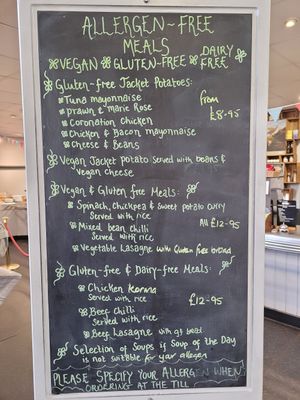 ALLERGEN-FREE
MEALS
VEGAN GLUTEN-FREE DAIRY FREE
Gluten-free Jacket Potatoes:
Tuna mayonnaise
prawn & marie Rose
from
Coronation chicken
£8.95
Chicken & Bacon mayonnaise
Cheese & Beans
Vegan Jacket potato served with beans &
vegan cheese
Vegan & Gluten free Meals:
Spinach, Chickpea & Sweet potato curry
Served with rice
Mixed bean chilli
All £12-95
Served with rice
Vegetable Lasagne with Gluten free bread
Gluten-free & Dairy-free Meals:
Chicken Korma
Served with rice
£12-95
Beef chilli
Served with rice
Beef Lasagne with gf bread
Selection of Soups if Soup of the Day
is not suitable for your allergen
PLEASE SPECIFY YOUR ALLERGEN WHEN
ORDERING AT THE TILL